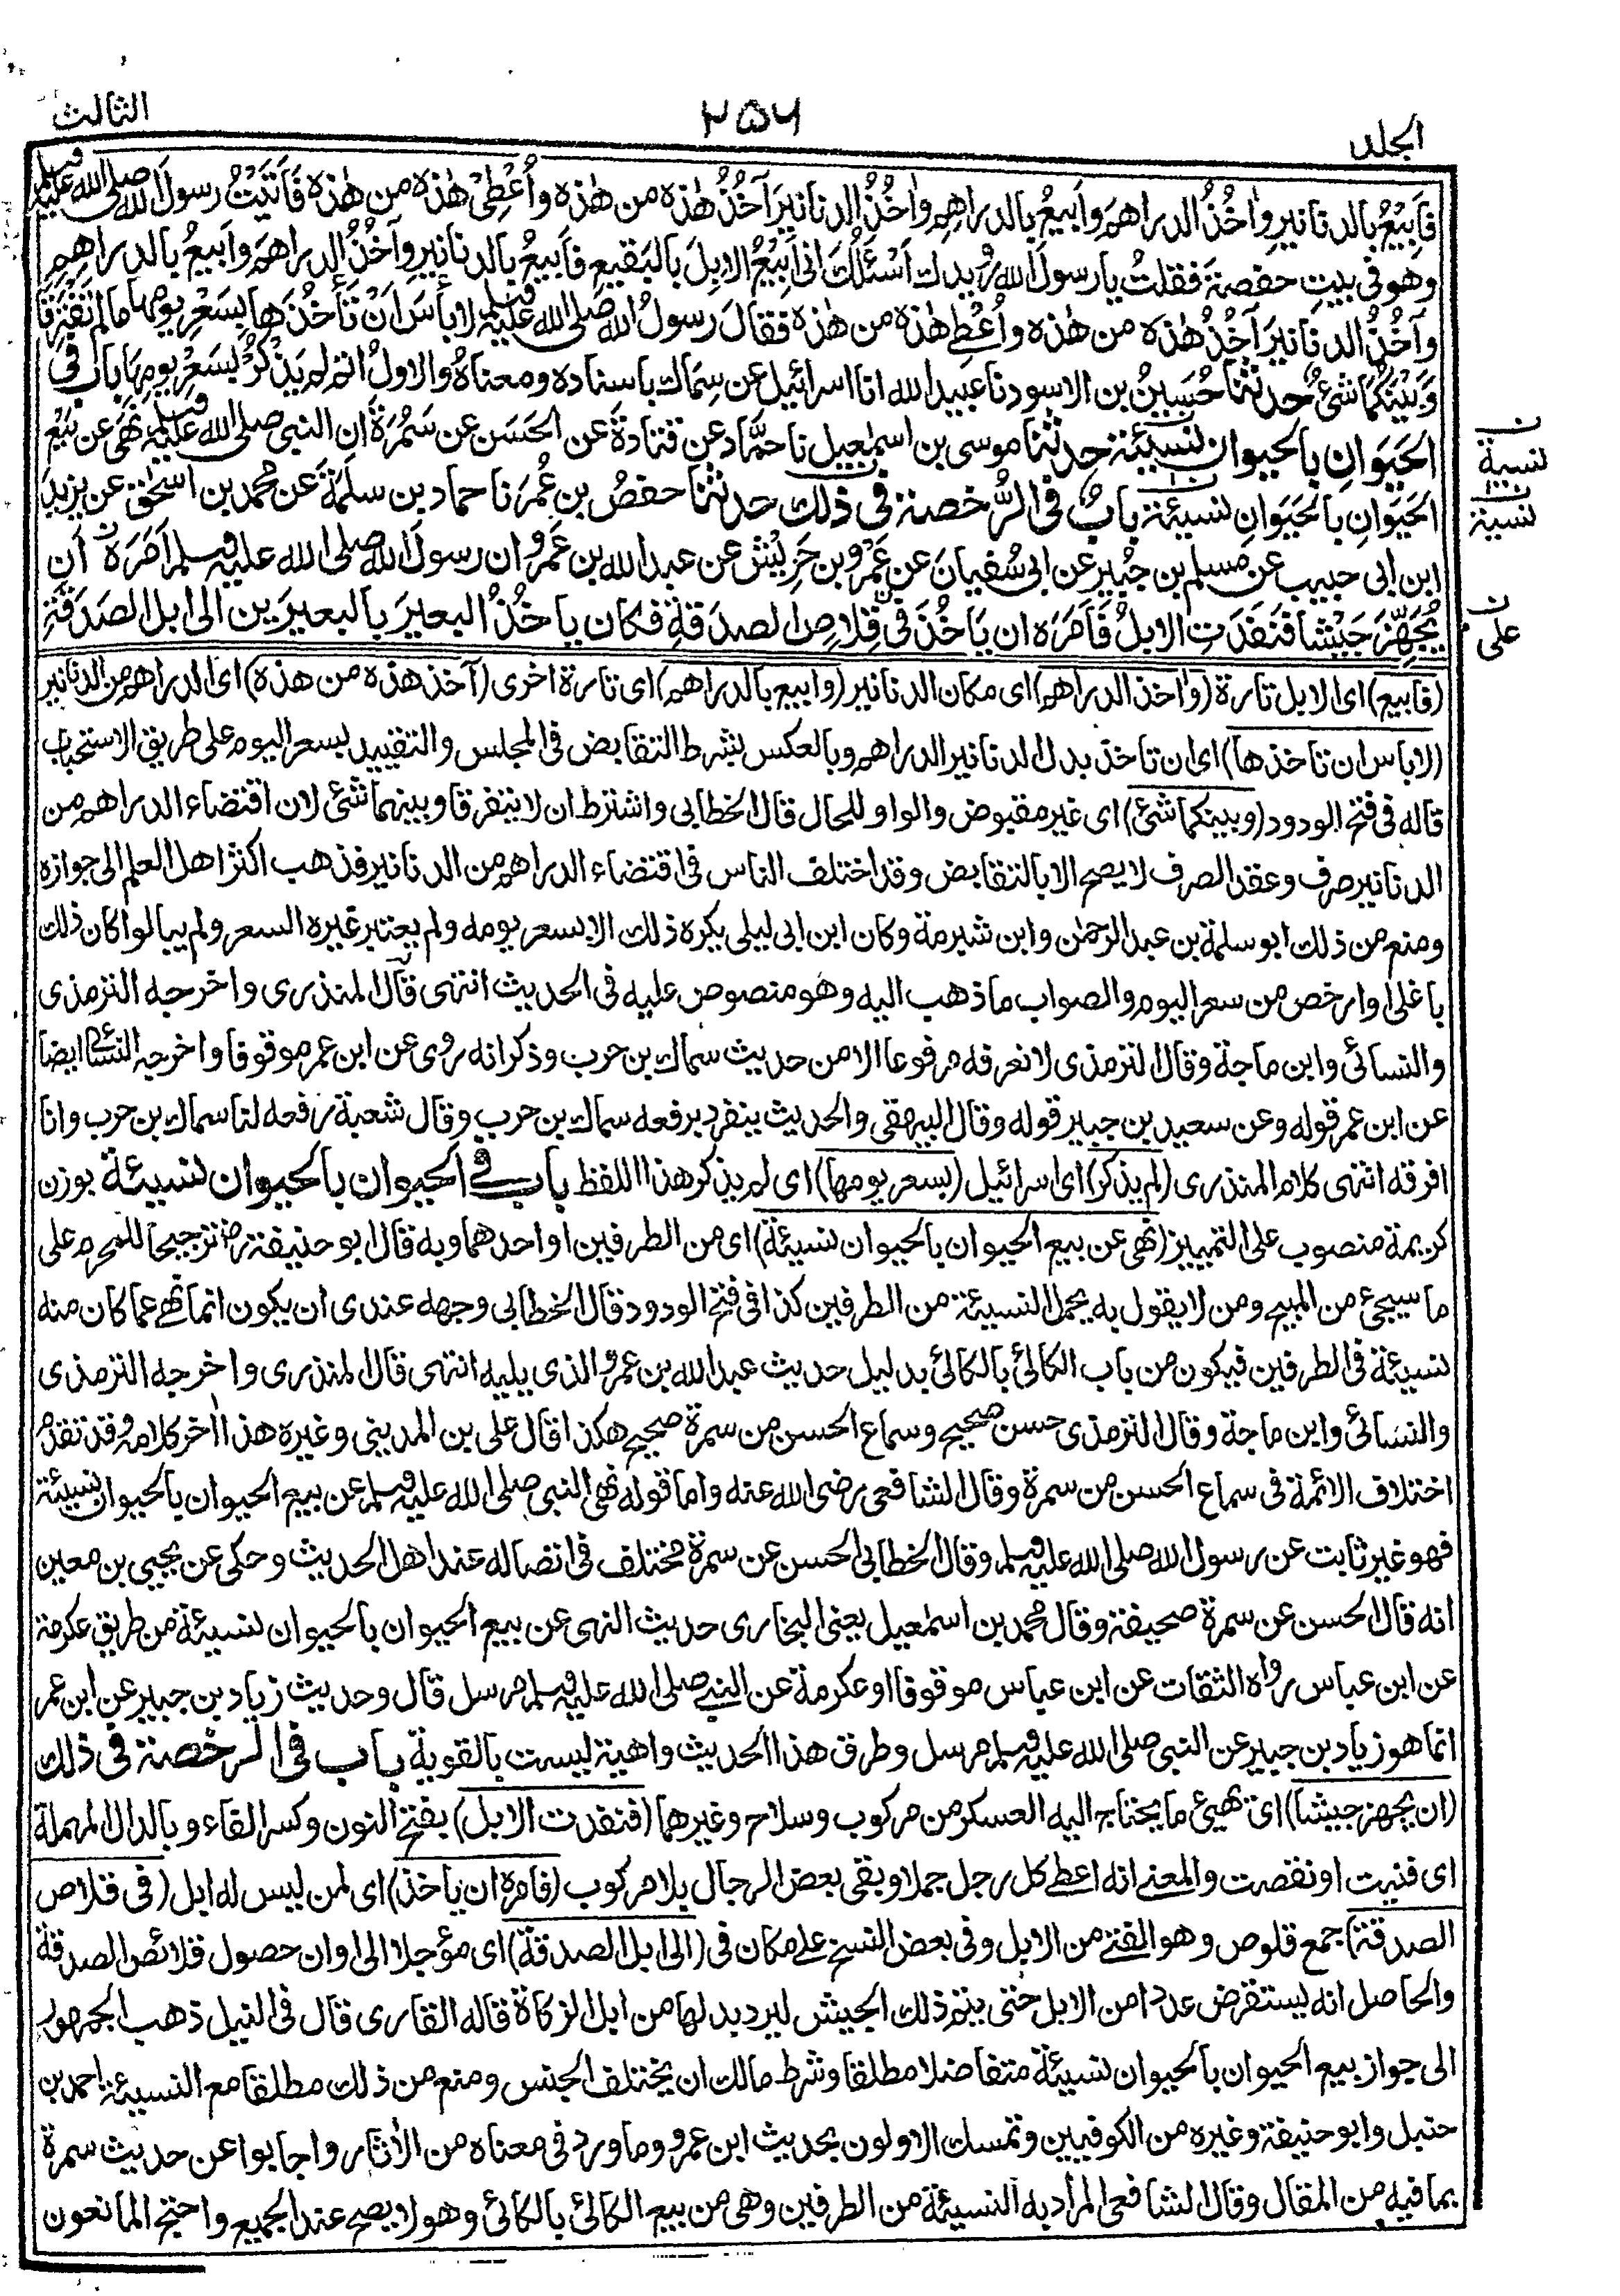 المجلد
٢٥٦
الثالث
فَاَبِيْعُ بالدنانيرِ واٰخُذُ الدراهمَ وابيعُ بالدراهمِ واٰخُذُ الدنانيرَ آخُذُ هٰذه من هٰذه واُعْطِىْ هٰذه من هٰذه فَاَتَيْتُ رسولَ الله صلى الله عليه وسلم
وهو فى بيتِ حفصةَ فقلتُ يا رسولَ الله رُوَيدك اَسْئَلُكَ انى اَبِيْعُ الابِلَ بالبَقيعِ فاَبيعُ بالدنانيرِ وآخُذُ الدراهمَ وابيعُ بالدراهمِ
وآخُذُ الدنانيرَ آخُذُ هٰذه من هٰذه واُعْطِى هٰذه من هٰذه فقالَ رسولُ الله صَلى الله عليه وسلم لا بأسَ اَنْ تَأْخُذَها بِسَعْرِ يومِها مالم تَفْتَرِقَا
وَبَيْنَكُمَا شئٌ حدثنا حُسَيْنُ بن الاسود نا عبيد الله انا اسرائيل عن سِمَاك باسناده ومعناهُ والاولُ اتم لم يَذْكُرْ بسَعْرِ يومِها باب فى
الحَيَوَانِ بالحيوان نسيئة حدثنا موسى بن اسمٰعيل نا حَمَّاد عن قتادةَ عن الحَسَن عن سَمُرَةَ ان النبى صلى الله عليه وسلم نَهى عن بَيْعِ
الحَيَوَانِ بالحَيَوَانِ نسيئة بابٌ فى الرُّخصة فى ذلك حدثنا حفصُ بن عُمَرَ نا حماد بن سلَمَةَ عن محمد بن اسحٰق عن يزيدَ
ابن ابى حبيب عن مسلم بن جُبَيرٍ عن ابى سُفيانَ عن عَمْرو بن حَرِيْشٍ عن عبد الله بن عَمْرٍو ان رسولَ الله صلى الله عليه وسلم اَمَرَهُ اَن
يُجَهِّزَ جَيْشًا فنَفِدَتِ الابلُ فَاَمَرَه ان يَأخُذَ فى قِلَاصِ الصدَقةِ فكان ياخُذُ البعيرَ بالبعيرَين الى ابل الصَدَقَةِ
ن نسية
ن نسيئة
ن على
(فابيع) اى الابل تارة (واٰخذ الدراهم) اى مكان الدنانير (وابيع بالدراهم) اى تارة اخرى (آخذ هذه من هذه) اى الدراهم من الدنانير
(لا باس ان تاخذها) اى ان تاخذ بدل الدنانير الدراهم وبالعكس بشرط التقابض فى المجلس والتقييد بسعر اليوم على طريق الاستحباب
قاله فى فتح الودود (وبينكما شئ) اى غير مقبوض والواو للحال قال الخطابى واشترط ان لا يتفرقا وبينهما شئ لان اقتضاء الدراهم من
الدنانير صرف وعقد الصرف لا يصح الا بالتقابض وقد اختلف الناس فى اقتضاء الدراهم من الدنانير فذهب اكثر اهل العلم الى جوازه
ومنع من ذلك ابو سلمة بن عبد الرحمٰن وابن شبرمة وكان ابن ابى ليلى يكره ذلك الا بسعر يومه ولم يعتبر غيره السعر ولم يبالوا كان ذلك
باغلى او ارخص من سعر اليوم والصواب ما ذهب اليه وهو منصوص عليه فى الحديث انتهى قال المنذرى واخرجه الترمذى
والنسائى وابن ماجة وقال الترمذى لا نعرفه مرفوعا الا من حديث سماك بن حرب وذكر انه روى عن ابن عمر موقوفا واخرجه النسائى ايضا
عن ابن عمر قوله وعن سعيد بن جبير قوله وقال البيهقى والحديث ينفرد برفعه سماك بن حرب وقال شعبة رفعه لنا سماك بن حرب وانا
افرقه انتهى كلام المنذرى (لم يذكر) اى اسرائيل (بسعر يومها) اى لم يذكر هذا اللفظ باب فى الحيوان بالحيوان نسيئة بوزن
كريمة منصوب على التمييز (نهى عن بيع الحيوان بالحيوان نسيئة) اى من الطرفين او احدهما وبه قال ابو حنيفة رضى ترجيحا للمحرم على
ما سيجئ من المبيح ومن لا يقول به يحمل النسيئة من الطرفين كذا فى فتح الودود قال الخطابى وجهه عندى ان يكون انما نهى عما كان منه
نسيئة فى الطرفين فيكون من باب الكالئ بالكالئ بدليل حديث عبد الله بن عمرو الذى يليه انتهى قال المنذرى واخرجه الترمذى
والنسائى وابن ماجة وقال الترمذى حسن صحيح وسماع الحسن من سمرة صحيح هكذا قال على بن المدينى وغيره هذا اٰخر كلامه وقد تقدم
اختلاف الائمة فى سماع الحسن من سمرة وقال الشافعى رضى الله عنه واما قوله نهى النبى صلى الله عليه وسلم عن بيع الحيوان بالحيوان نسيئة
فهو غير ثابت عن رسول الله صلى الله عليه وسلم وقال الخطابى الحسن عن سمرة مختلف فى اتصاله عند اهل الحديث وحكى عن يحيى بن معين
انه قال الحسن عن سمرة صحيفة وقال محمد بن اسمٰعيل يعنى البخارى حديث النهى عن بيع الحيوان بالحيوان نسيئة من طريق عكرمة
عن ابن عباس رواه الثقات عن ابن عباس موقوفا او عكرمة عن النبى صلى الله عليه وسلم مرسل قال وحديث زياد بن جبير عن ابن عمر
انما هو زياد بن جبير عن النبى صلى الله عليه وسلم مرسل وطرق هذا الحديث واهية ليست بالقوية باب فى الرخصة فى ذلك
(ان يجهز جيشا) اى تهيئ ما يحتاج اليه العسكر من مركوب وسلاح وغيرهما (فنفدت الابل) بفتح النون وكسر الفاء وبالدال المهملة
اى فنيت او نقصت والمعنى انه اعطى كل رجل جملا وبقى بعض الرجال بلا مركوب (فامره ان ياخذ) اى لمن ليس له ابل (فى قلاص
الصدقة) جمع قلوص وهو الفتى من الابل وفى بعض النسخ على مكان فى (الى ابل الصدقة) اى مؤجلا الى اوان حصول قلائص الصدقة
والحاصل انه يستقرض عددا من الابل حتى يتم ذلك الجيش ليرد بدلها من ابل الزكاة قاله القارى قال فى النيل ذهب الجمهور
الى جواز بيع الحيوان بالحيوان نسيئة متفاضلا مطلقا وشرط مالك ان يختلف الجنس ومنع من ذلك مطلقا مع النسيئة احمد بن
حنبل وابو حنيفة وغيره من الكوفيين وتمسك الاولون بحديث ابن عمرو وما ورد فى معناه من الاٰثار واجابوا عن حديث سمرة
بما فيه من المقال وقال الشافعى المراد به النسيئة من الطرفين وهى من بيع الكالئ بالكالئ وهو لا يصح عند الجميع واحتج المانعون